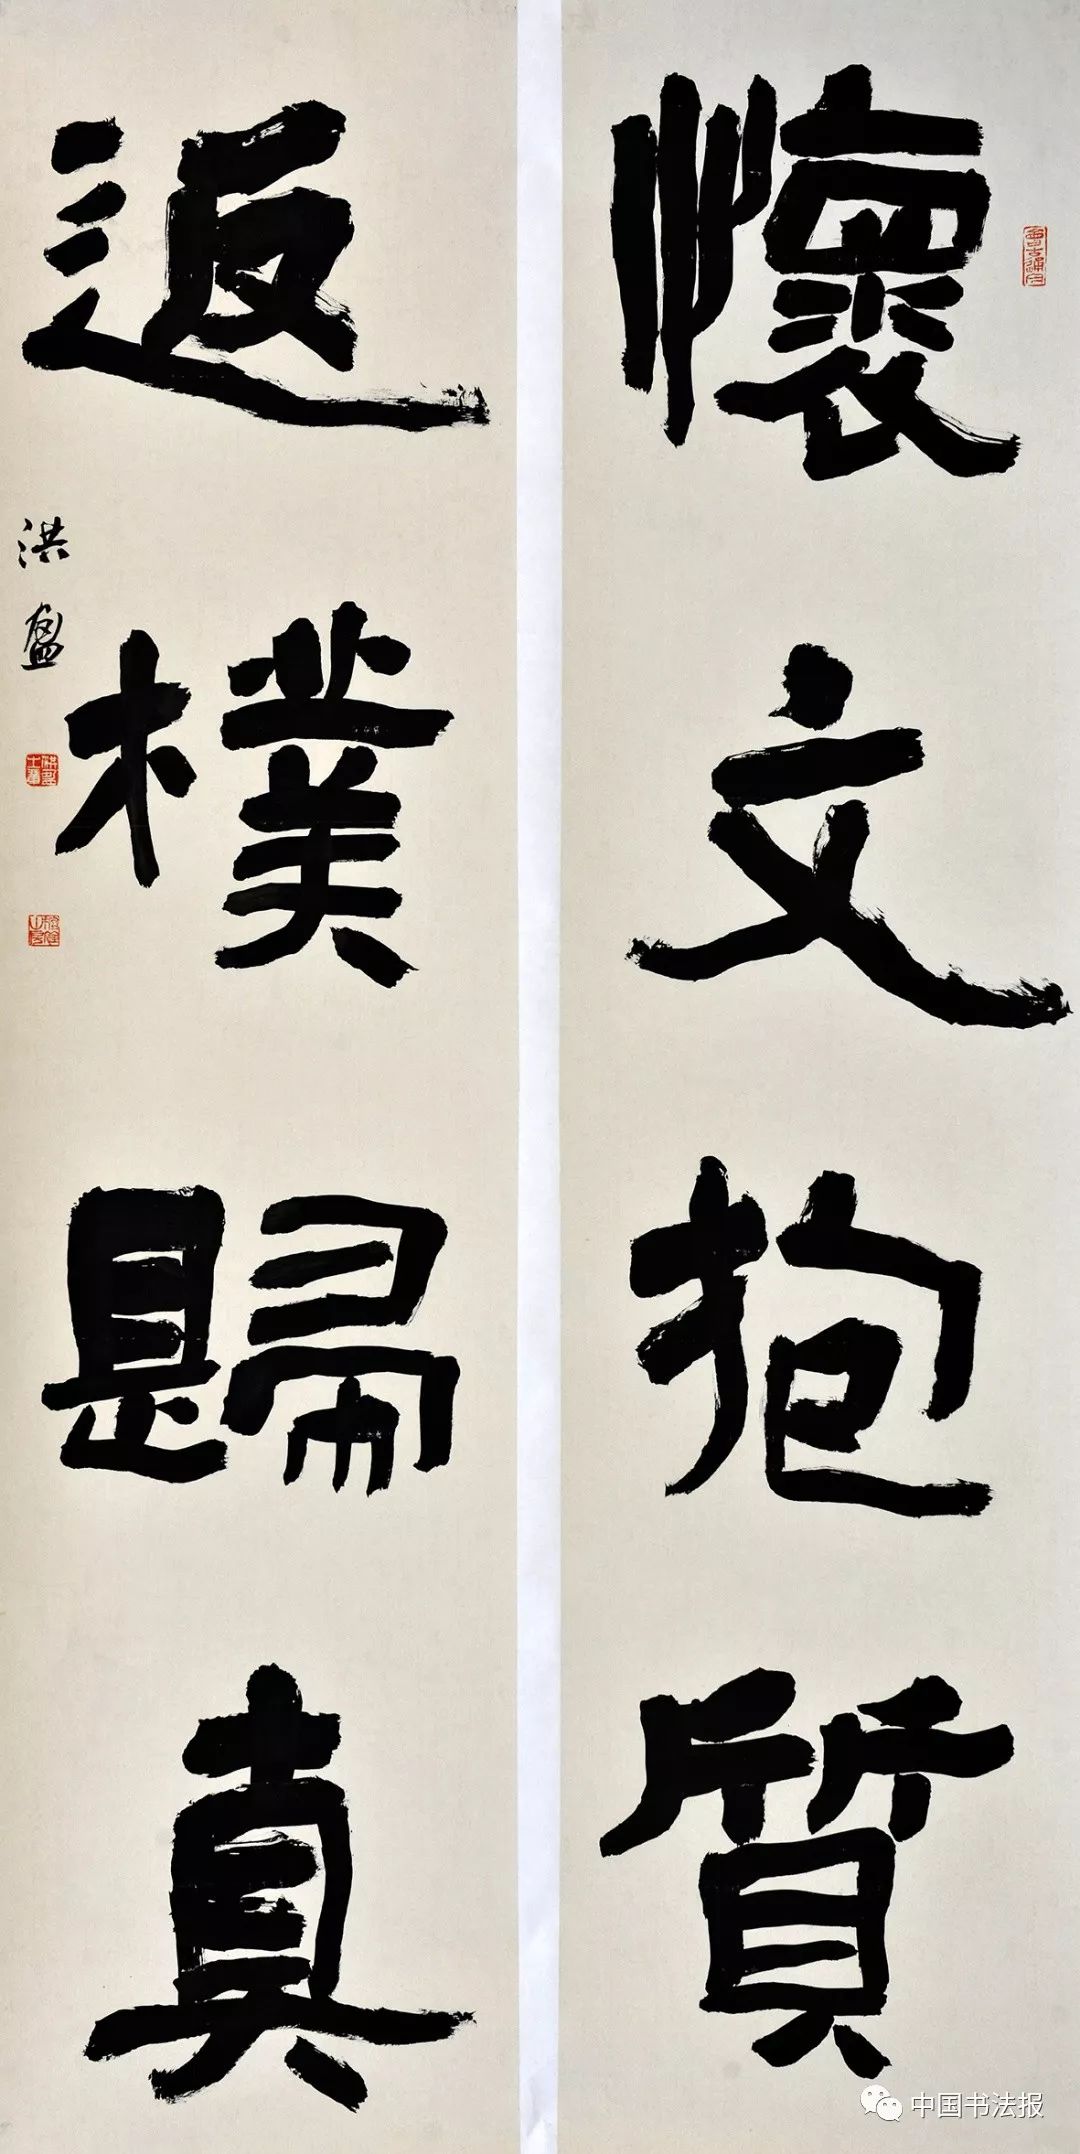 懷文抱質
返樸歸真
洪盈
中国书法报